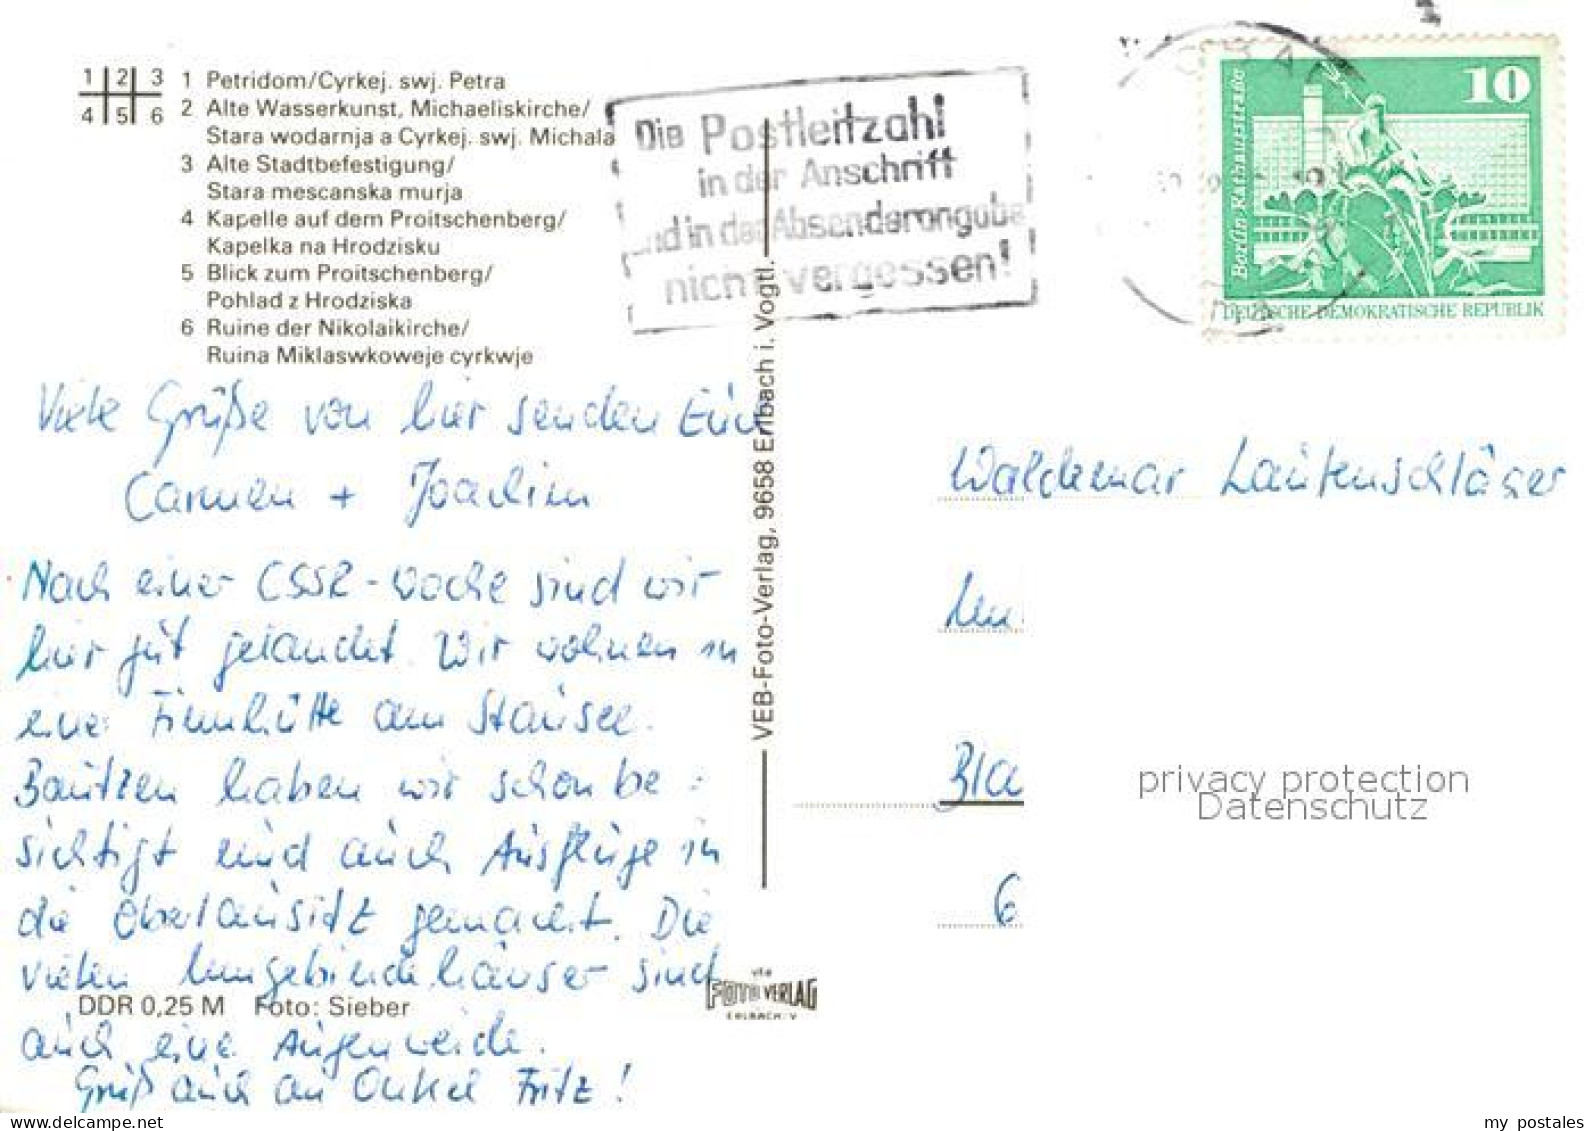 1 2 3
4 5 6
1 Petridom/Cyrkej. swj. Petra
2 Alte Wasserkunst, Michaeliskirche/
Stara wodarnja a Cyrkej. swj. Michala
3 Alte Stadtbefestigung/
Stara mescanska murja
4 Kapelle auf dem Proitschenberg/
Kapelka na Hrodzisku
5 Blick zum Proitschenberg/
Pohlad z Hrodziska
6 Ruine der Nikolaikirche/
Ruina Miklaswkoweje cyrkwje
Die Postleitzahl
in der Anschrift
und in der Absenderangabe
nicht vergessen!
10
Berlin, Rathausstraße
DEUTSCHE DEMOKRATISCHE REPUBLIK
Viele Grüße von hier senden Euch
Carmen + Joachim
Nach einer CSSR-Woche sind wir
hier gut gelandet. Wir wohnen in
einer Finnhütte am Stausee.
Bautzen haben wir schon be=
sichtigt und auch Ausflüge in
die Oberlausitz gemacht. Die
vielen Umgebindehäuser sind
auch eine Augenweide.
Gruß auch an Onkel Fritz!
DDR 0,25 M Foto: Sieber
VEB-Foto-Verlag, 9658 Erlbach i. Vogtl.
FOTO VERLAG
ERLBACH/V
Waldemar Lautenschläger
Bla
6
privacy protection
Datenschutz
www.delcampe.net
my_postales